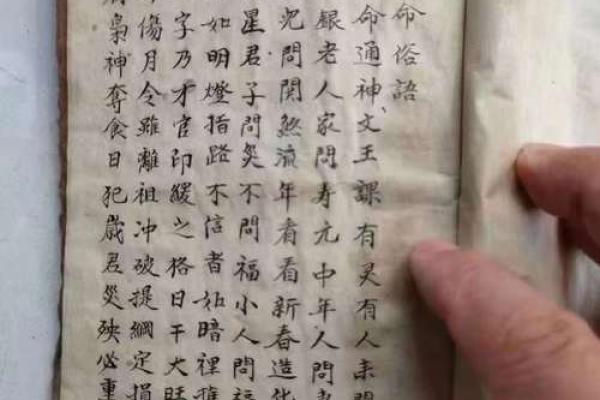 命俗語
命通神、文王課有灵有人来問
銀老人家問寿元中年人問
児問関煞流年看看新春造化
星君子問災不問福小人問福
如明燈指路不信者如暗裡
字乃才官印綬之格日干大旺
傷月令雖離祖冲破提綱定損
梟神奪食日犯歳君災殃必重